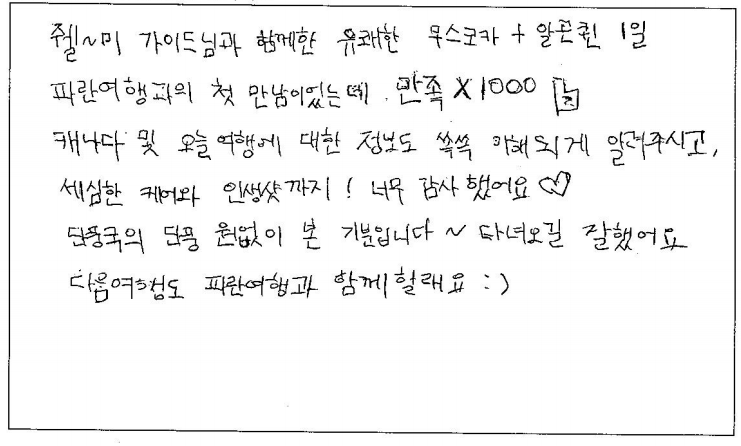 쮈~미 가이드님과 함께한 유쾌한 무스코카 + 알곤퀸 1일
파란여행과의 첫 만남이었는데 만족 X 1000 👍
캐나다 및 오늘 여행에 대한 정보도 쏙쏙 이해되게 알려주시고,
세심한 케어와 인생샷까지! 너무 감사했어요 ♡
단풍국의 단풍 원없이 본 기분입니다 ~ 다녀오길 잘했어요
다음여행도 파란여행과 함께할래요 :)